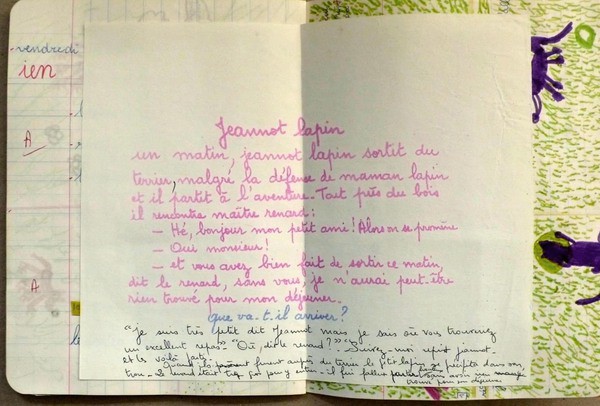 vendredi
ien
A
A
Jeannot lapin
un matin, jeannot lapin sortit du
terrier, malgré la défense de maman lapin
et il partit à l'aventure. Tout près du bois
il rencontre maître renard:
— Hé, bonjour mon petit ami! Alors on se promène
— Oui monsieur!
— et vous avez bien fait de sortir ce matin,
dit le renard, sans vous, je n'aurai peut-être
rien trouvé pour mon déjeuner.
que va-t-il arriver?
"je suis très petit dit Jeannot mais je sais où vous trouverez
un excellent repas" "Où, dit le renard?" "Suivez-moi reprit jeannot.
et les voilà partis.
Quand ils furent auprès du terrier le petit lapin se précipita dans son
trou. Le renard était trop gros pour y entrer. il lui fallut partir sans avoir
trouvé pour son déjeuner